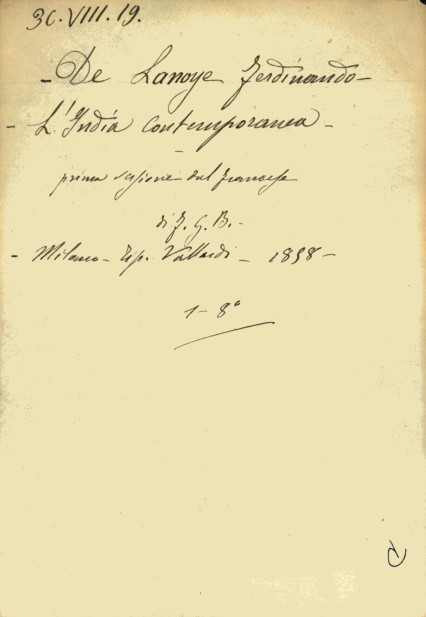 3C.VIII.19.
- De Lanoye Ferdinando -
- L'India contemporanea -
-
prima versione dal francese
di F. G. B. -
- Milano - Tip. Vallardi - 1858 -
1 - 8°